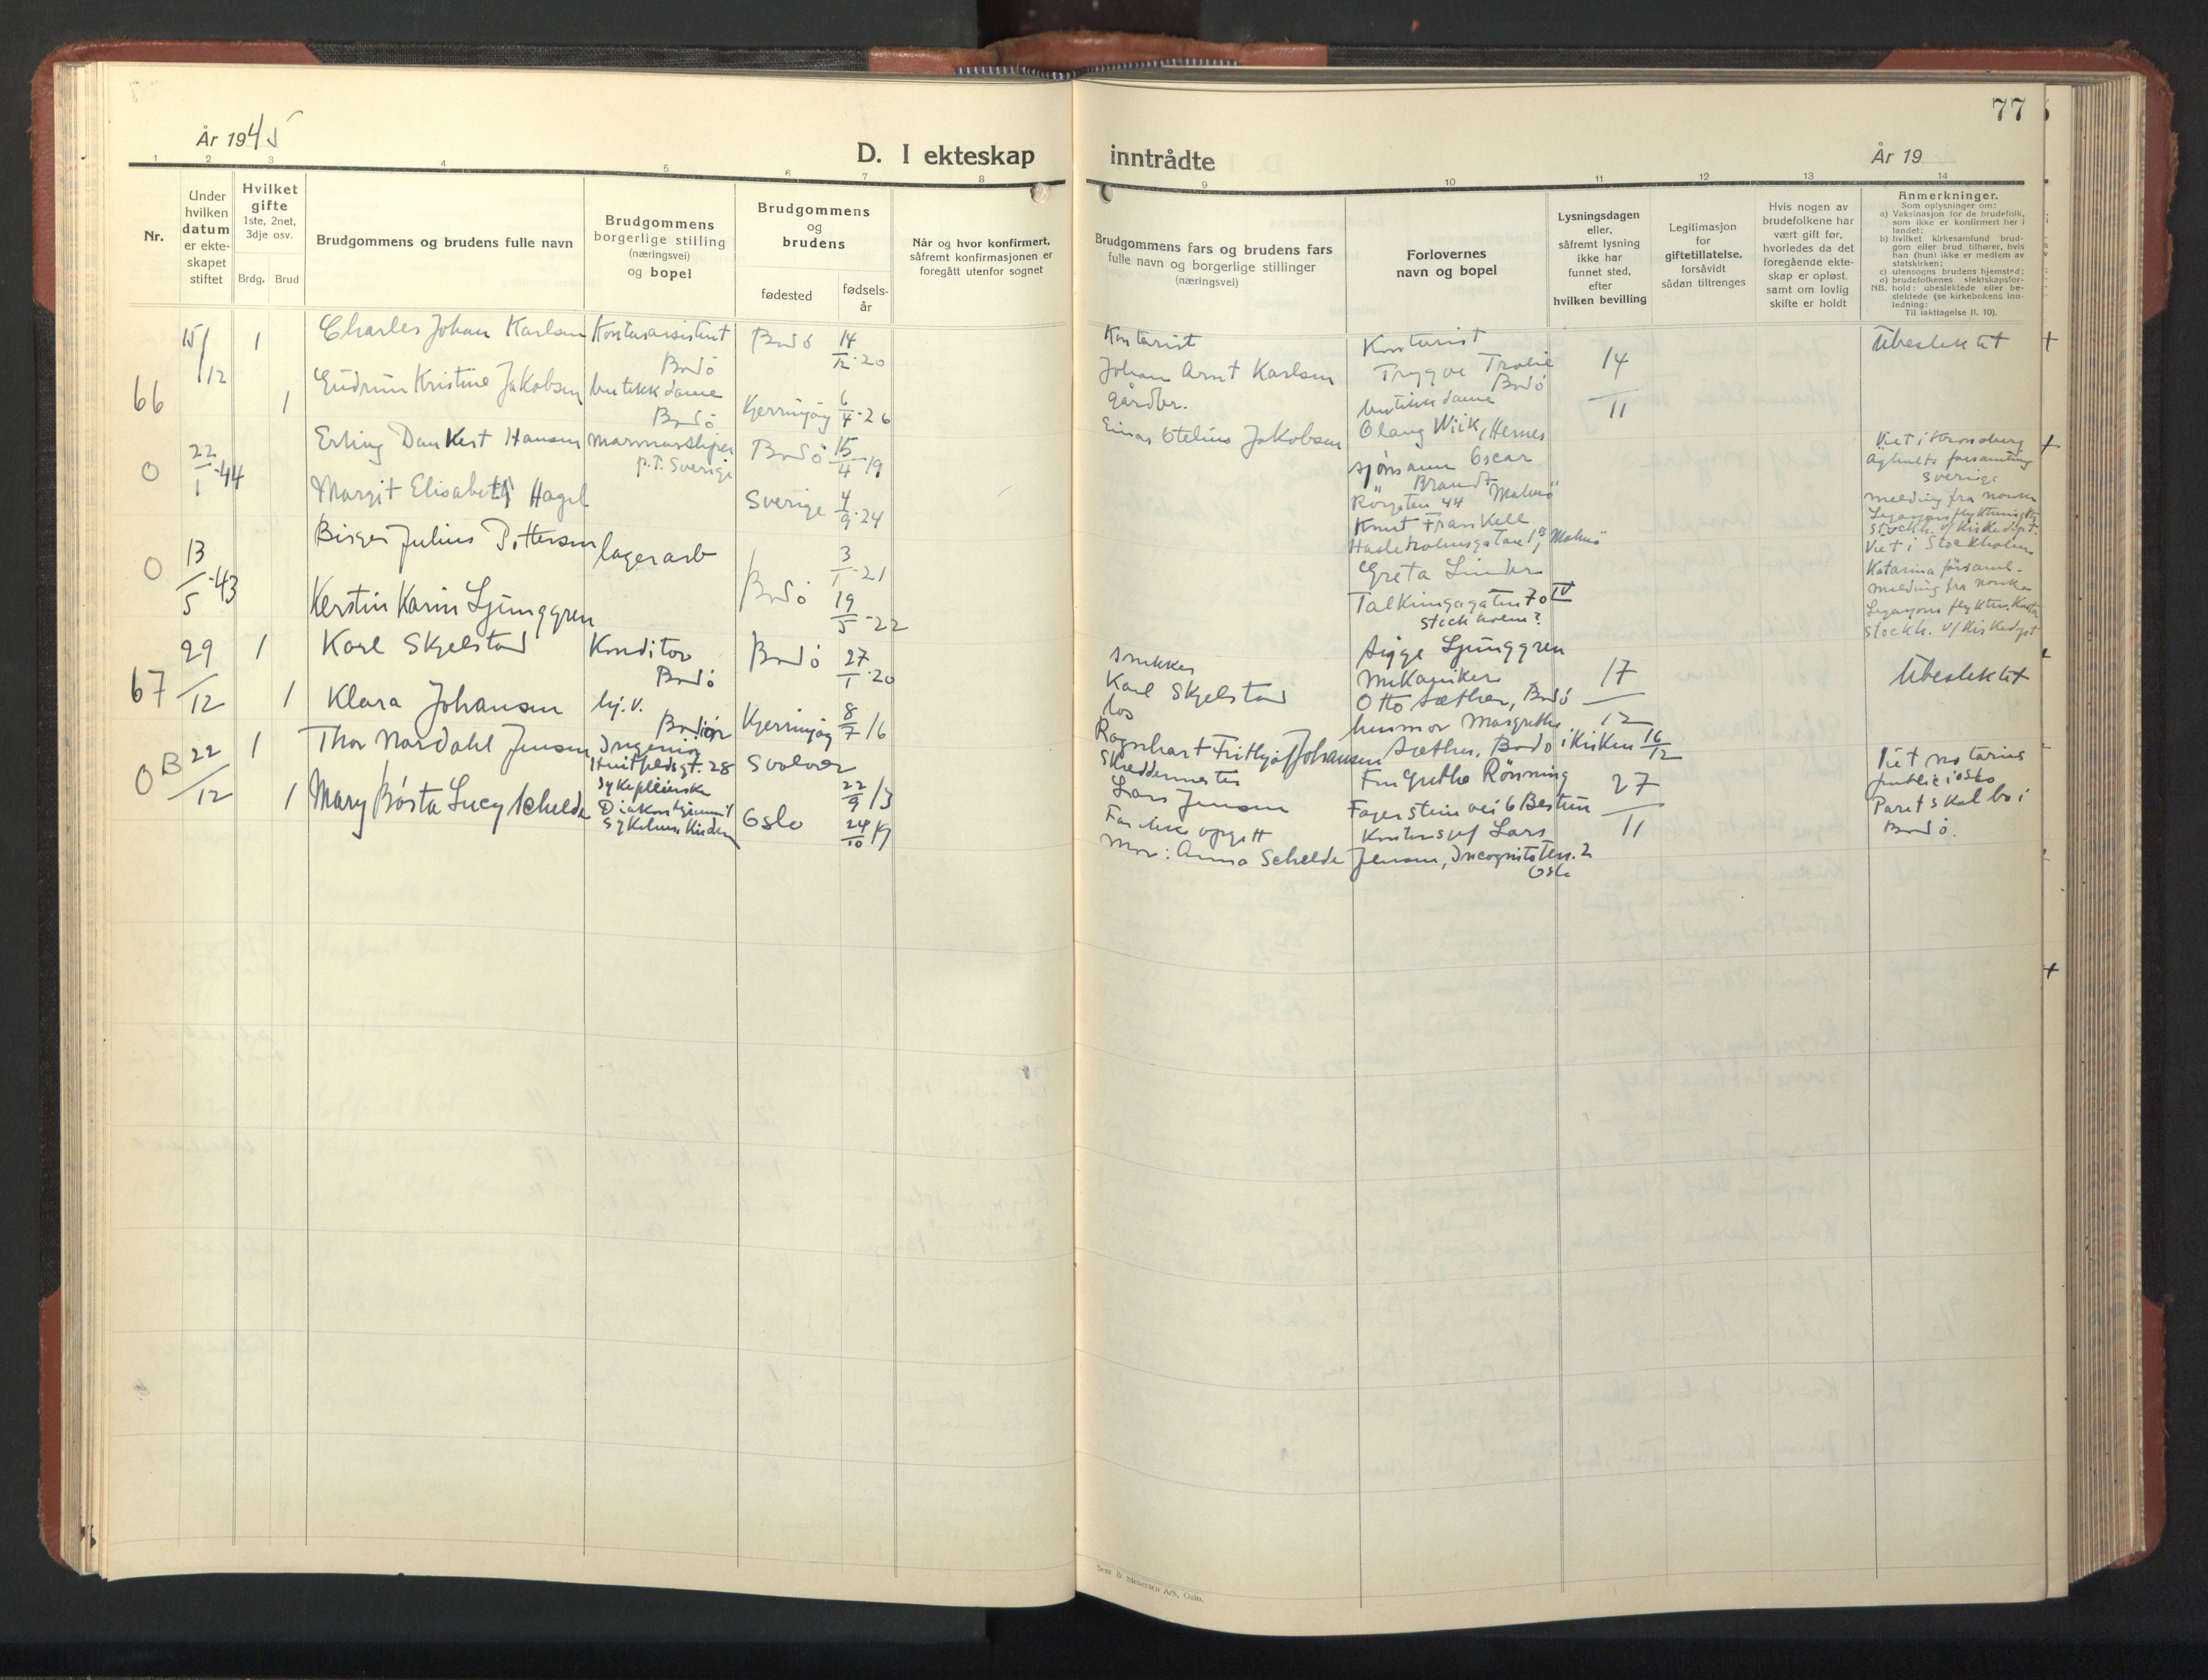 År 1945
D. I ekteskap
1 2 3 4 5 6 7 8
Nr.
Under hvilken datum er ekteskapet stiftet
Hvilket gifte 1ste, 2net, 3dje osv.
Brdg. Brud
Brudgommens og brudens fulle navn
Brudgommens borgerlige stilling (næringsvei) og bopel
Brudgommens og brudens
fødested fødselsår
Når og hvor konfirmert, såfremt konfirmasjonen er foregått utenfor sognet
66
15/12 1 Charles Johan Karlsen Kontorassistent Bodö Bodö 14/12-20
1 Gudrun Kristine Jakobsen butikkdame Bodö Kjerringöy 6/4-26
0 22/1-44 Erling Dankert Hansen marmorsliper p.t. Sverige Bodö 15/4-19
Margit Elisabeth Hagel Sverige 4/9-24
0 13/5-43 Birger Julius Pettersen lagerarb 3/1-21
Kerstin Karin Ljunggren Bodö 19/5-22
67 29/12 1 Karl Skjelstad Konditor Bodö Bodö 27/1-20
1 Klara Johansen hj.v. Kjerringöy 8/7 16
0B 22/12 1 Thor Nordahl Jensen Ingeniör Huitfeldsgt. 28 Svolvær 22/9 13
1 Mary Bösta Lucy Schelde Sykepleierske Oslo 24/10 17
77
inntrådte
År 19
9 10 11 12 13 14
Brudgommens fars og brudens fars fulle navn og borgerlige stillinger (næringsvei)
Forlovernes navn og bopel
Lysningsdagen eller, såfremt lysning ikke har funnet sted, efter hvilken bevilling
Legitimasjon for giftetillatelse, forsåvidt sådan tiltrenges
Hvis nogen av brudefolkene har vært gift før, hvorledes da det foregående ekteskap er opløst. samt om lovlig skifte er holdt
Anmerkninger.
Som oplysninger om:
a) Vaksinasjon for de brudefolk, som ikke er konfirmert her i landet;
b) hvilket kirkesamfund brudgom eller brud tilhører, hvis han (hun) ikke er medlem av statskirken;
c) utensogns brudens hjemsted;
d) brudefolkenes slektskapsforhold: ubeslektede eller beslektede (se kirkebokens innledning:
NB.
Til iakttagelse II, 10).
Kontorist
Johan Arnt Karlsen
Kontorist
Trygve Trolie
Bodö
14/11
Ubeslektet
gårdbr.
Einar Otelius Jakobsen
butikkdame
Olaug Wiik, Hernes
sjömann Oscar
Brandt Malmö
Rörgatan 44
Knut Frankell
Malmö
Viet i Kronoberg
Älghults forsamling
Sverige
melding fra norske
Stockh. v/Kirkedept.
Greta Linder
70 IV
Stockholm?
Sigge Ljunggren
Viet i Stockholm
Katarina församl.
melding fra norske
Stockh. v/Kirkedept
snekker
Karl Skjelstad
mekaniker
Otto Sæther, Bodö
17/12
Ubeslektet
los
Ragnhart Frithjof Johansen
husmor Margrethe
Sæther, Bodö i Kirken 16/12
Skreddermester
Lars Jensen
Fru Grethe Rönning
Fagersteinvei 6 Bestun
27/11
Viet notarius
public i Oslo
Paret skal bo i
Bodö.
Far ikke opgitt
Mor: Anna Schelde
Kontorsjef Lars
Jensen, Incognitoterr. 2
Oslo
Sem & Stenersen A/S, Oslo.